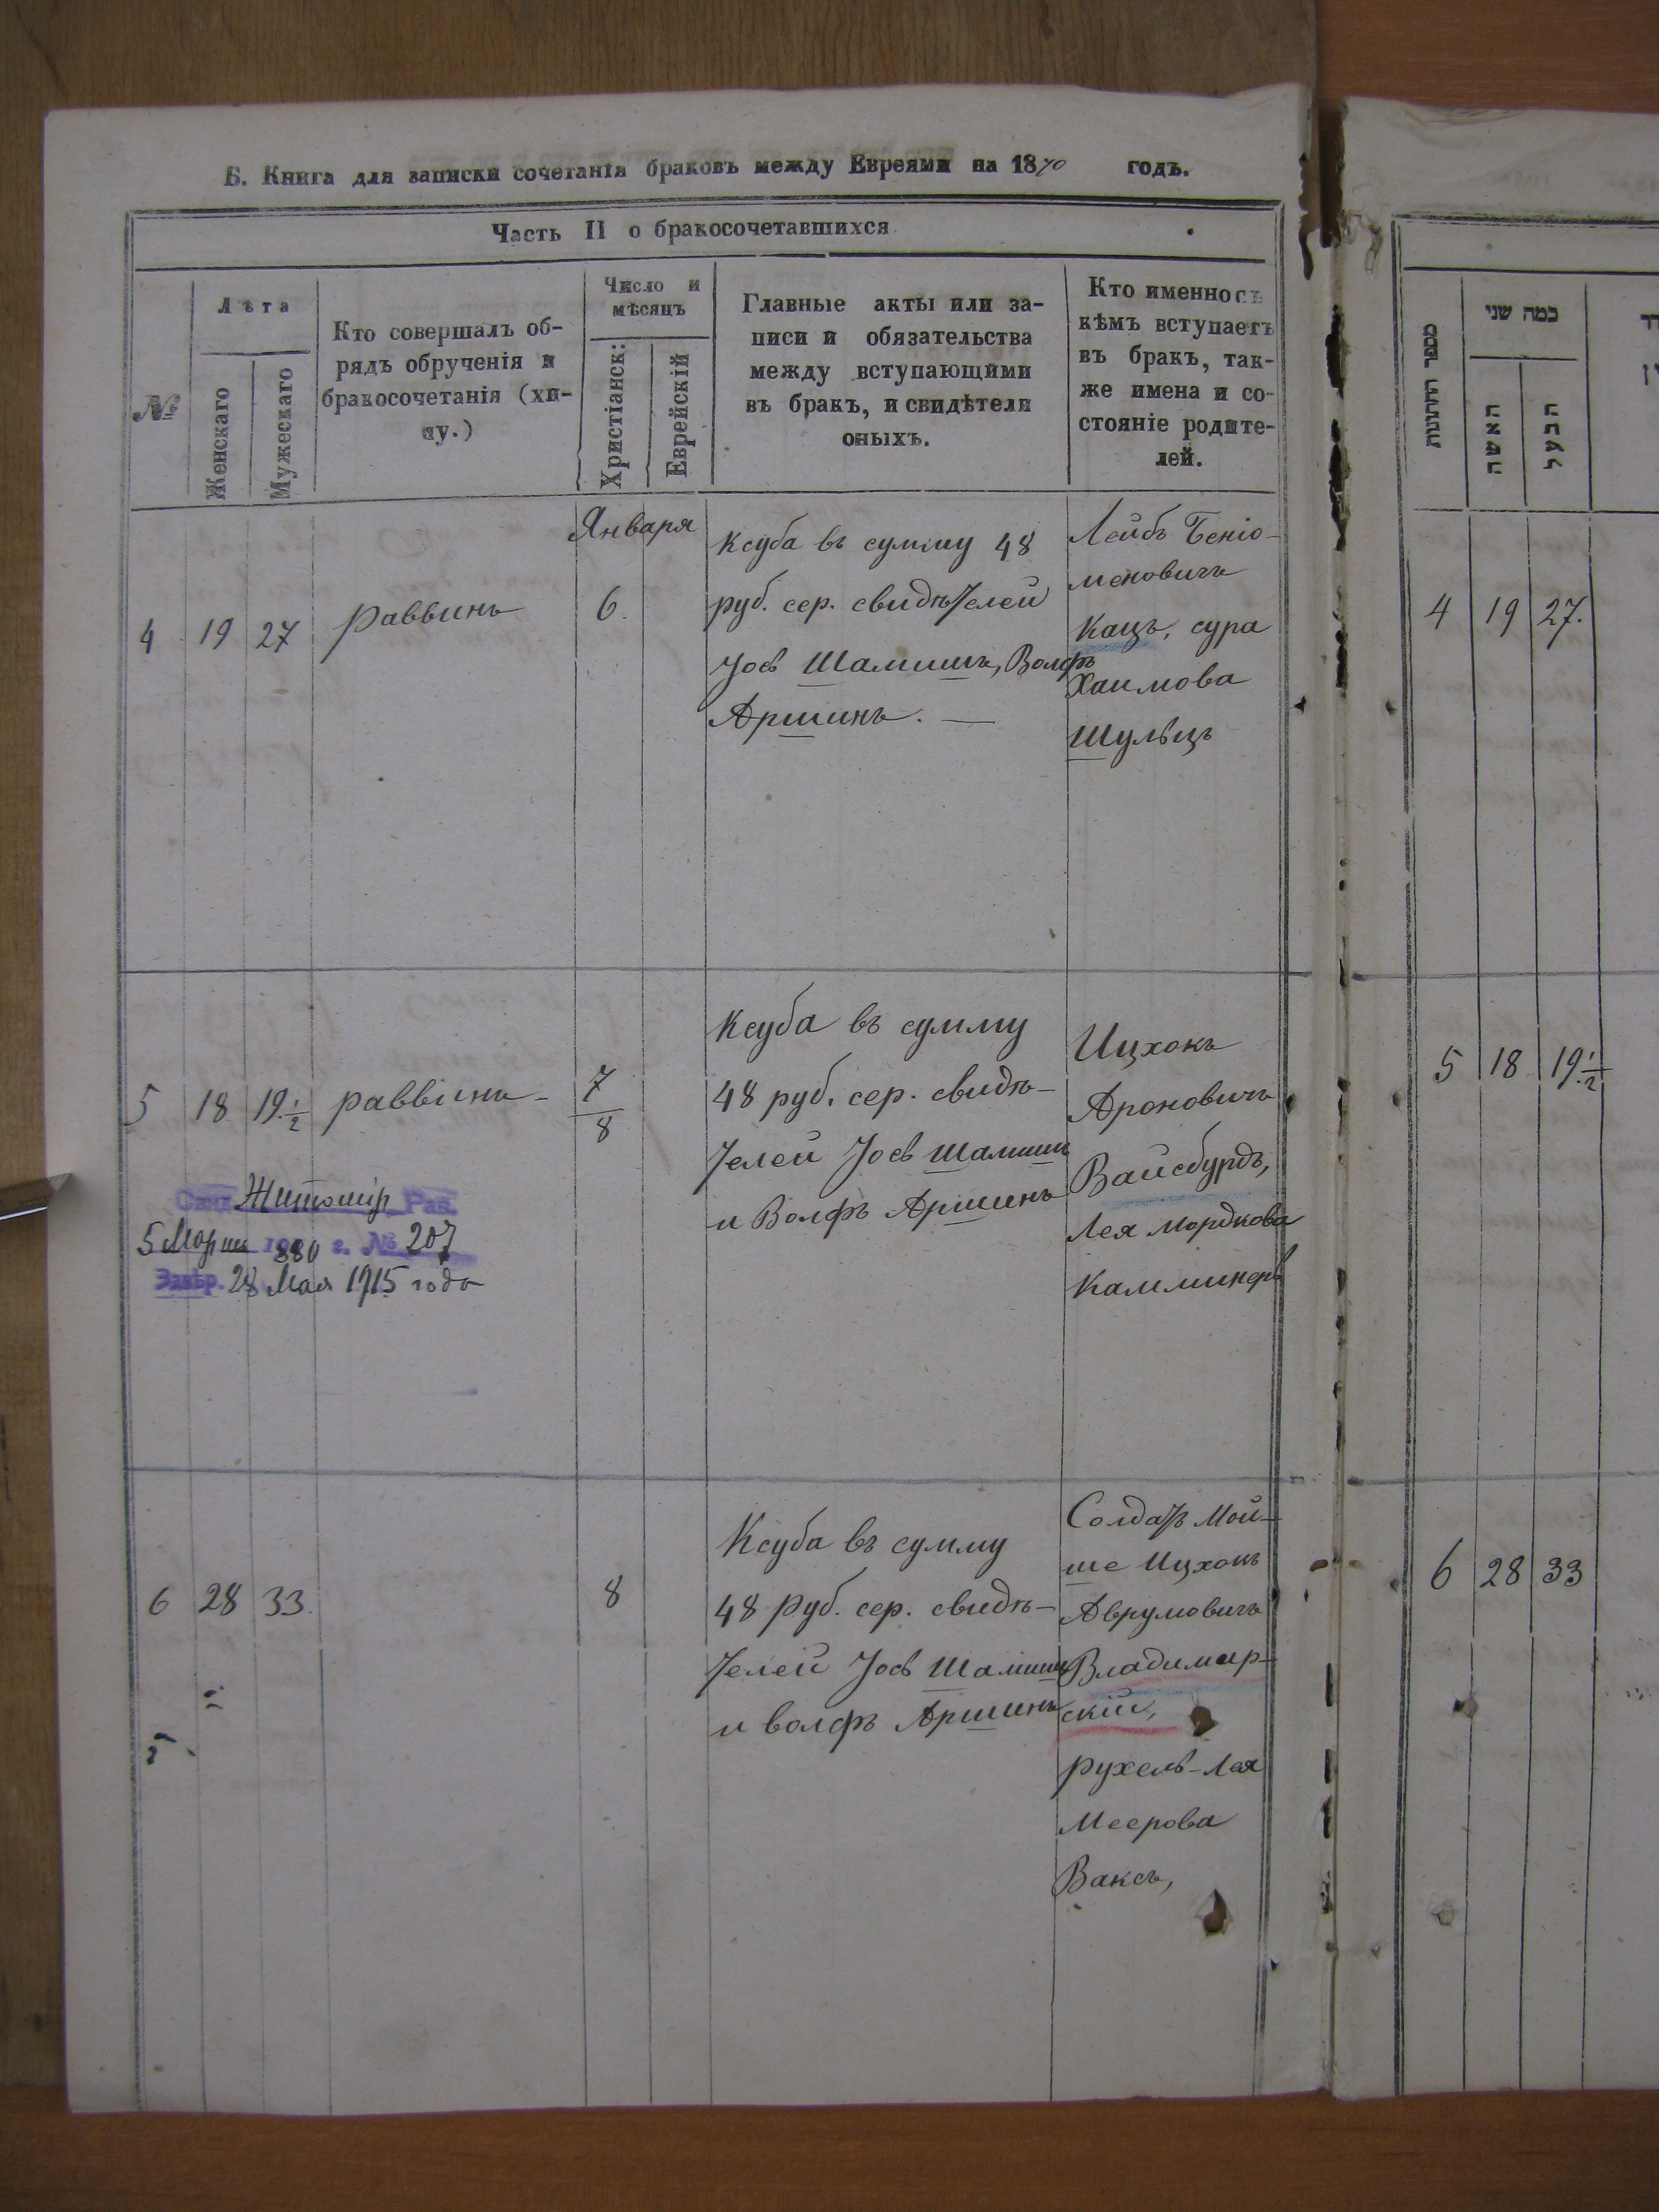 Б. Книга для записки сочетанія браковъ между Евреями на 1870 годъ.
Часть II о бракосочетавшихся.
№
Лѣта
Женскаго
Мужескаго
Кто совершалъ об-
рядъ обрученія и
бракосочетанія (хи-
пу.)
Число и
мѣсяцъ
Христіанск:
Еврейскій
Главные акты или за-
писи и обязательства
между вступающими
въ бракъ, и свидѣтели
оныхъ.
Кто именно съ
кѣмъ вступаетъ
въ бракъ, так-
же имена и со-
стояніе родите-
лей.
Января
4 19 27 Раввинъ 6.
Ксуба въ сумму 48
руб. сер. свидѣтелей
Јосъ Шамишъ, Волфъ
Аршинъ. —
Лейбъ Беніо-
меновичъ
Кацъ, сура
Хаимова
Шульцъ
5 18 19 1/2 раввинъ - 7/8
Ксуба въ сумму
48 руб. сер. свидѣ-
телей Јось Шамиш
и Волфъ Аршинъ
Ицхокъ
Ароновичъ
Вайсбурдъ,
Лея Мордкова
Камминеръ
Свид. Житомір Рав.
5 Марта 1880 г. № 207
Завѣр. 28 Мая 1915 года
6 28 33. 8
Ксуба въ сумму
48 руб. сер. свидѣ-
телей Јось Шамиш
и волфъ Аршинъ
Солдатъ Мой-
ше Ицхокъ
Аврумовичъ
Владимир-
скій,
Рухель-Лея
Меерова
Ваксъ,
מספר החתונות
כמה שני
האשה
הבעל
4 19 27.
5 18 19 1/2
6 28 33